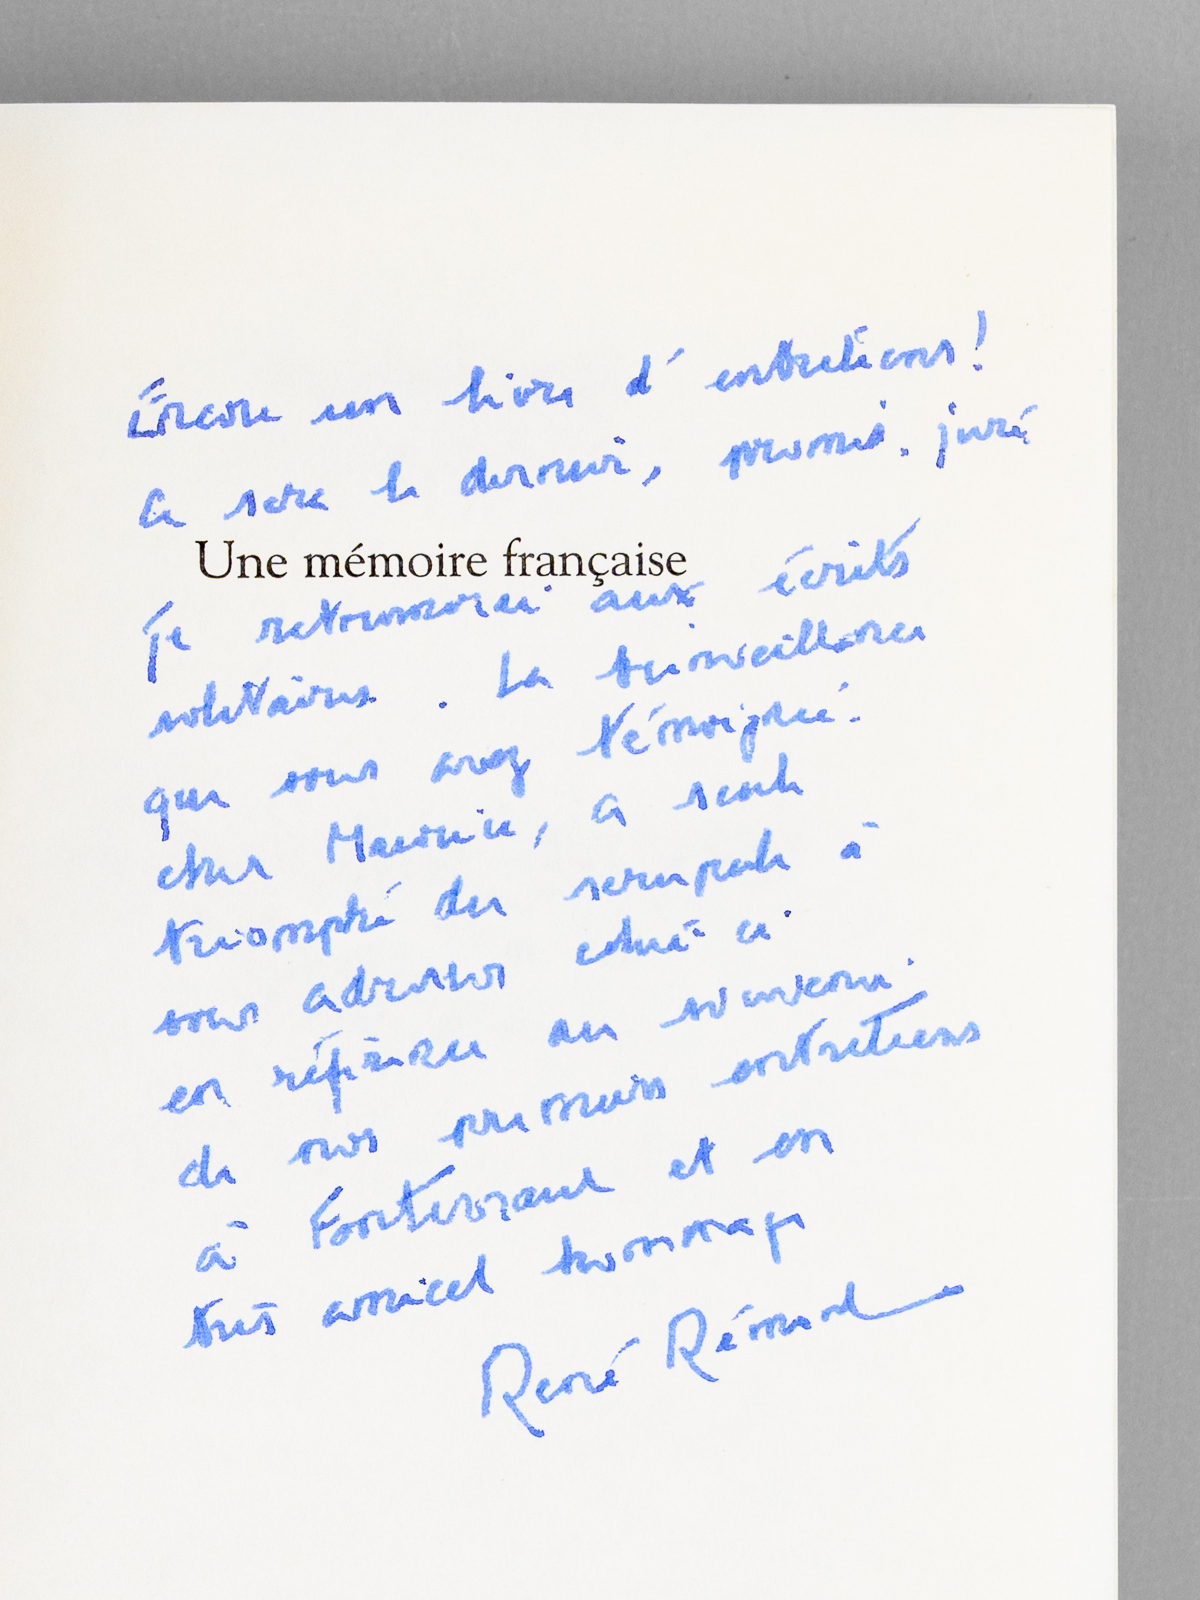 Encore un livre d'entretiens!
Ce sera le dernier, promis, juré
Une mémoire française
Je retournerai aux écrits
solitaires. La bienveillance
que vous avez témoignée,
cher Maurice, a seule
triomphé du scrupule à
vous adresser celui-ci
en référence au souvenir
de nos premiers entretiens
à Fontevraud et en
très amical hommage
René Rémond